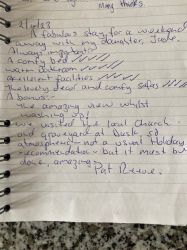 Many thanks.
21/10/23
A fabulous stay for a weekend
away with my daughter, Jade.
Always important:
A comfy bed ✓✓✓✓✓
warm bathroom ✓✓✓✓
Excellent facilities ✓✓✓✓
The lovely decor and comfy sofas ✓✓✓✓
A bonus:
The amazing view whilst
washing up!
We visited the local Church
and graveyard at Dusk, so
atmospheric - not a usual Holiday
recommendation - but it must be
done, amazing.
Pat